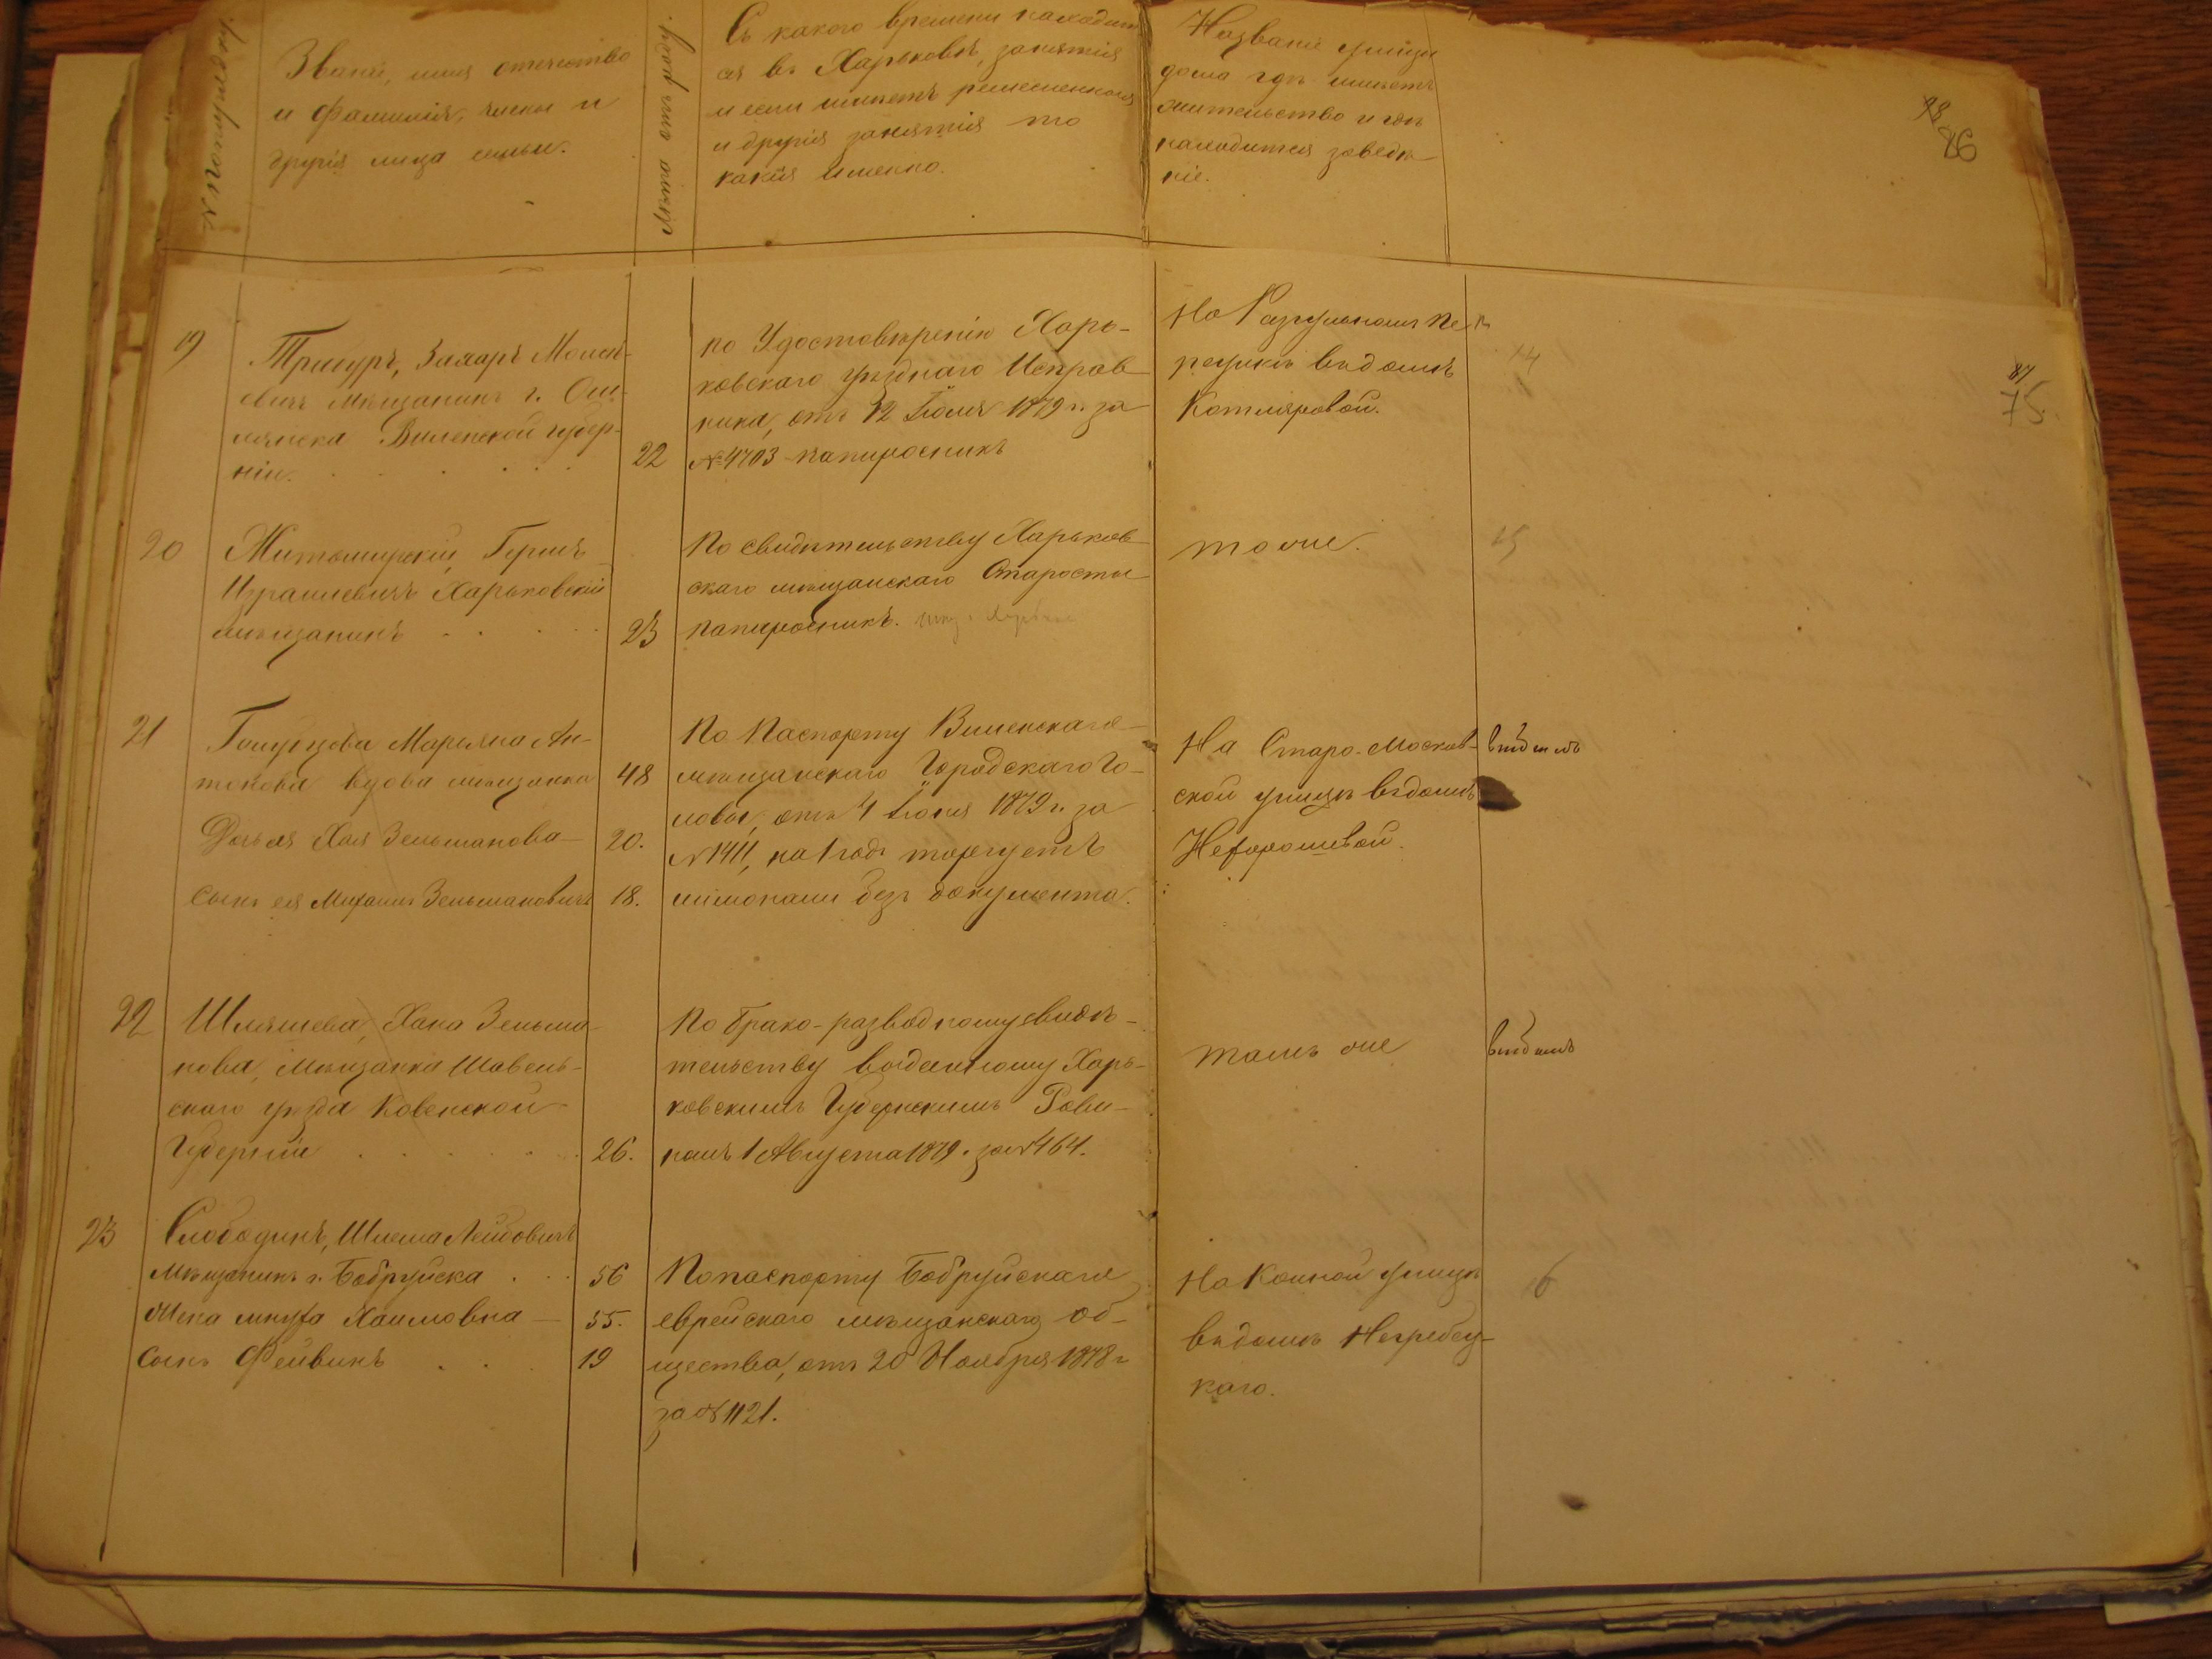 № по порядку.
Званіе, имя отчество
и фамилія, члены и
другія лица семьи.
сколько отъ роду.
Съ какого времени находит
ся въ Харьковѣ, занятія
и если имѣетъ ремесленныя
и другія занятія то
какія именно.
Названіе улицы
дома гдѣ имѣетъ
жительство и гдѣ
находится заведе-
ніе.
86
19
Тригуръ, Захаръ Моисе-
евичъ мѣщанинъ г. Ош-
мянска Виленской губер-
ніи.
22
по Удостовѣренію Харь-
ковскаго уѣзднаго Исправ
ника, отъ 12 Іюля 1879 г. за
№ 4703 папиросникъ
На Разгульномъ пе
реулкѣ въ домѣ
Котляровой.
14
87
75
20
Житомирскій, Гершъ
Израилевичъ Харьковскій
мѣщанинъ
23
По свидѣтельству Харьков
скаго мѣщанскаго Старосты
папиросникъ.
тоже.
15
21
Голубцова Марьяна Ан-
тонова вдова мѣщанка
48
Дочь ея Хая Зельманова
20.
Сынъ ея Михаилъ Зельмановичъ
18.
По Паспорту Виленскаго
мѣщанскаго Городскаго Го-
ловы, отъ 4 Іюля 1879 г. за
№ 1411, на 1 годъ торгуетъ
лимонами безъ документа.
На Старо-Москов-
ской улицѣ въ домѣ
Нехорошевой.
22
Шляшева, Хана Зельма-
нова, мѣщанка Шавель-
скаго уѣзда Ковенской
Губерніи
26.
По брако-разводному свидѣ-
тельству выданному Харь-
ковскимъ Губернскимъ Рави-
номъ 1 Августа 1879 г. за № 464.
тамъ же
23
Слободинъ, Шлема Лейбовичъ
Мѣщанинъ г. Бобруйска
56
Жена Хаимовна
55.
Сынъ Фейвинъ
19
По паспорту Бобруйскаго
еврейскаго мѣщанскаго об-
щества, отъ 20 Ноября 1878 г
за № 1121.
На Конной улицѣ
въ домѣ Негребец-
каго.